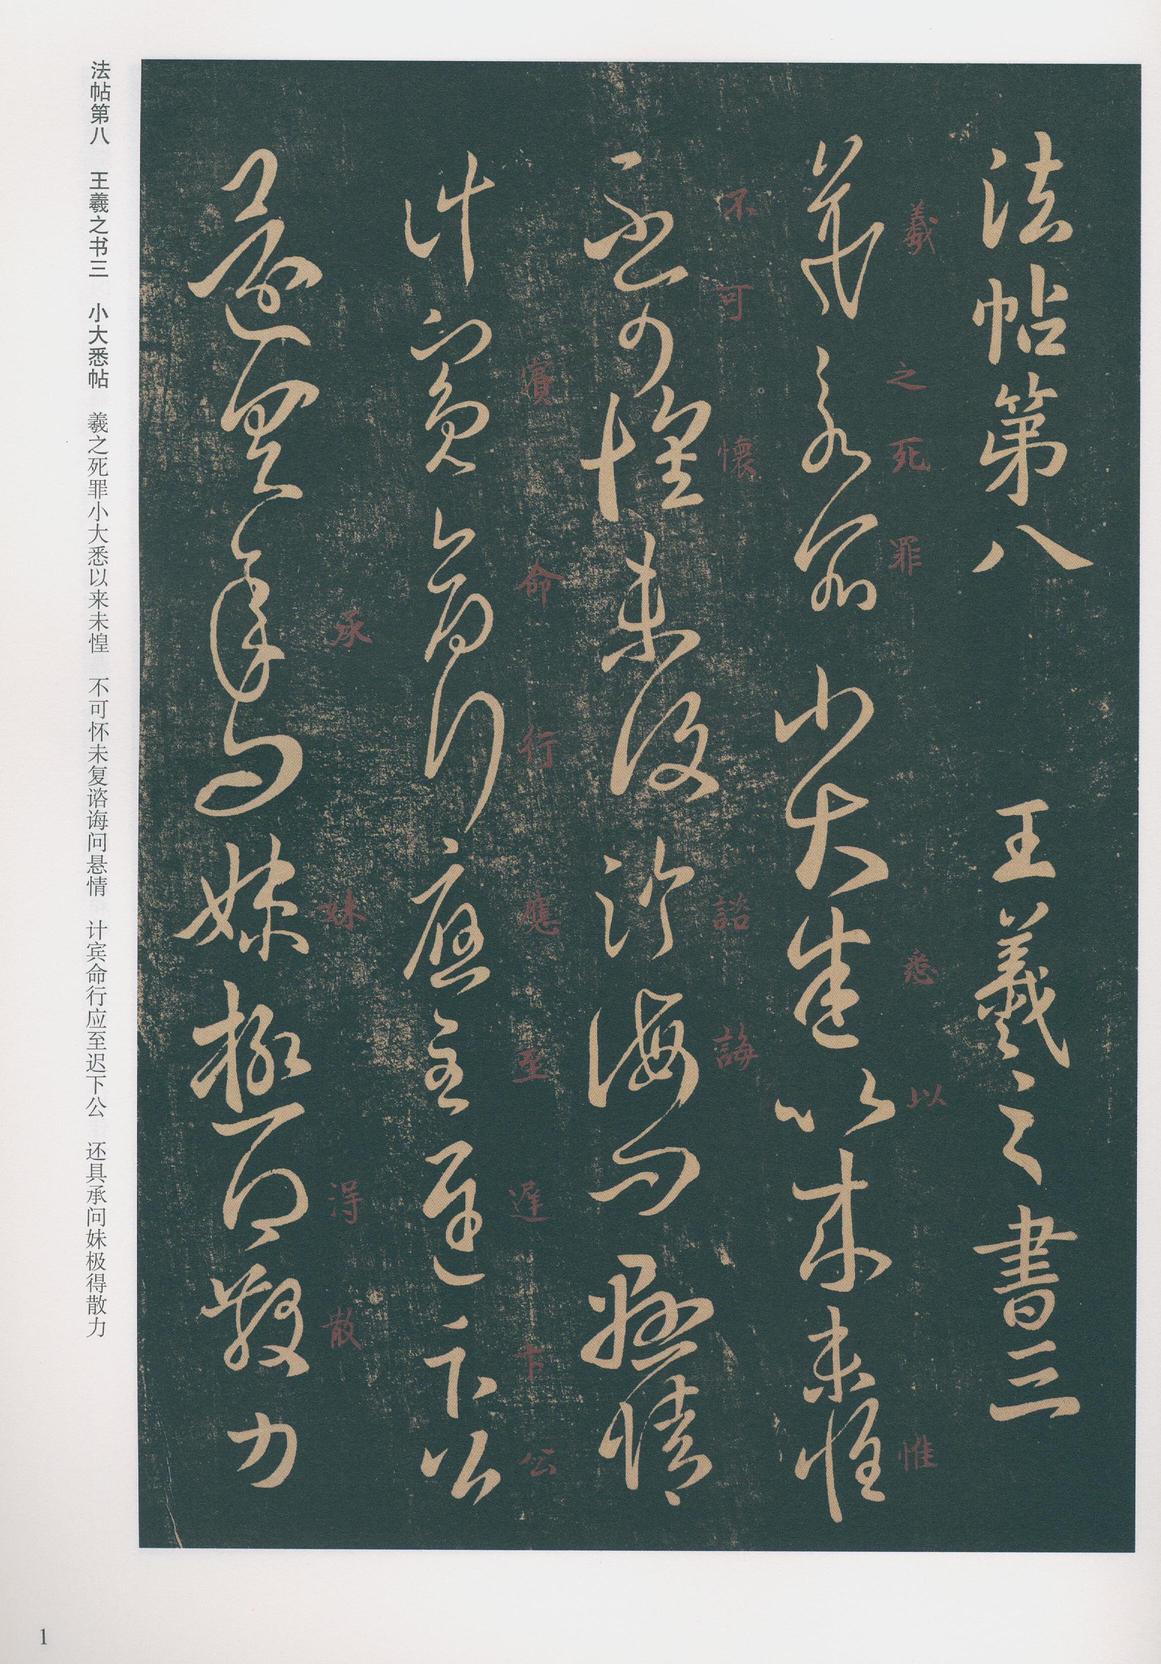 法帖第八 王羲之書三
羲之死罪小大悉以来未惟
不可懷未復諮誨問懸情
计賓命行應至遲卞公
還具承问妹極得散力
羲
之
死
罪
悉
以
惟
不
可
懷
諮
誨
賓
命
行
應
至
遲
卞
公
承
妹
得
散
法帖第八 王羲之书三 小大悉帖 羲之死罪小大悉以来未惶 不可怀未复谘诲问悬情 计宾命行应至迟下公 还具承问妹极得散力
1